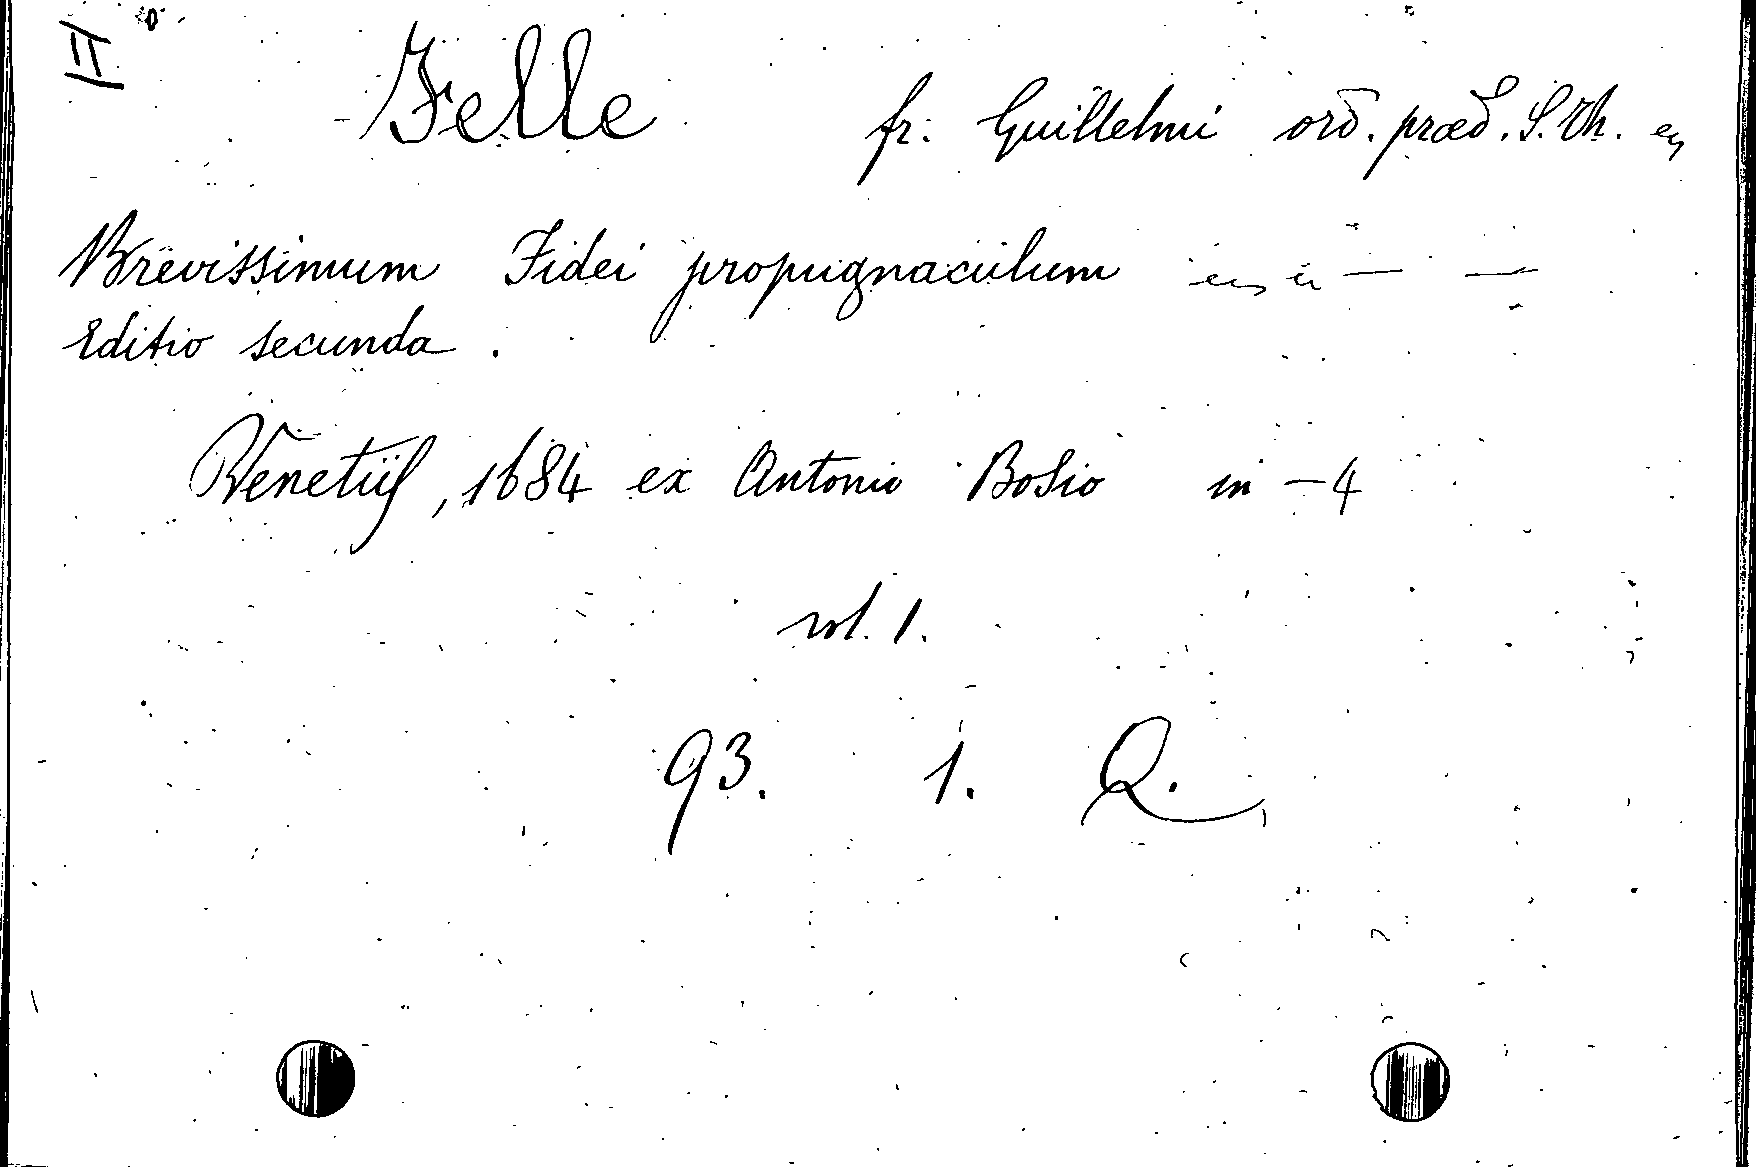 II
Felle fr: Guillelmi ord. præd. S. Th.
Brevissimum Fidei propugnaculum
Editio secunda.
Venetiis, 1684 ex Antonio Bosio in-4
vol. 1.
93. 1. Q.